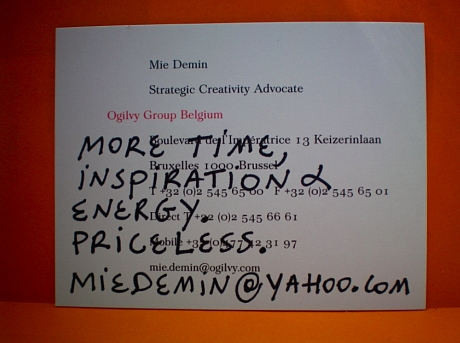 Mie Demin
Strategic Creativity Advocate
Ogilvy Group Belgium
Boulevard de l'Impératrice 13 Keizerinlaan
MORE TIME,
Bruxelles 1000 Brussel
INSPIRATION &
T +32 (0)2 545 65 00 F +32 (0)2 545 65 01
ENERGY.
Direct T +32 (0)2 545 66 61
PRICELESS.
Mobile +32 (0)477 42 31 97
mie.demin@ogilvy.com
MIEDEMIN@YAHOO.COM